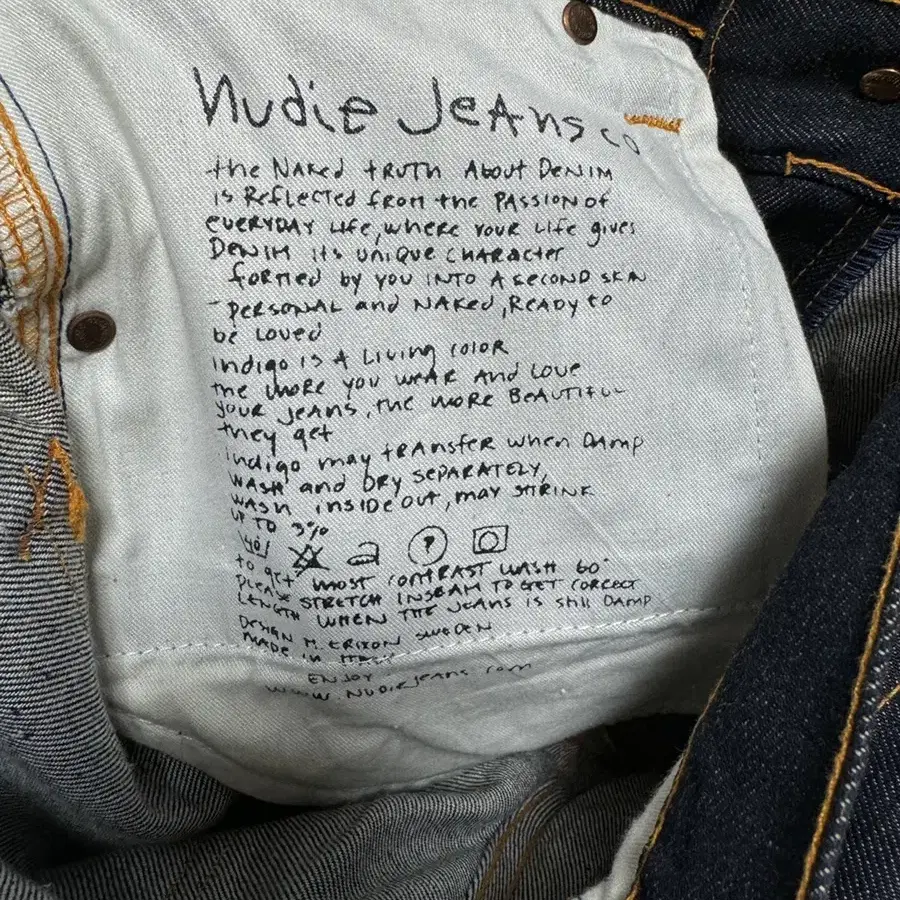 Nudie Jeans co
the Naked truth About Denim
is Reflected from the passion of
everyday life, where your life gives
Denim its unique character
formed by you into a second skin
- personal and naked, ready to
be loved
indigo is a living color
the more you wear and love
your jeans, the more beautiful
they get
indigo may transfer when damp
wash and dry separately,
wash inside out, may shrink
up to 3%
60
to get most contrast wash 60°
please stretch inseam to get correct
length when the jeans is still damp
design M. Erixon Sweden
made in Italy
enjoy
www.nudiejeans.com